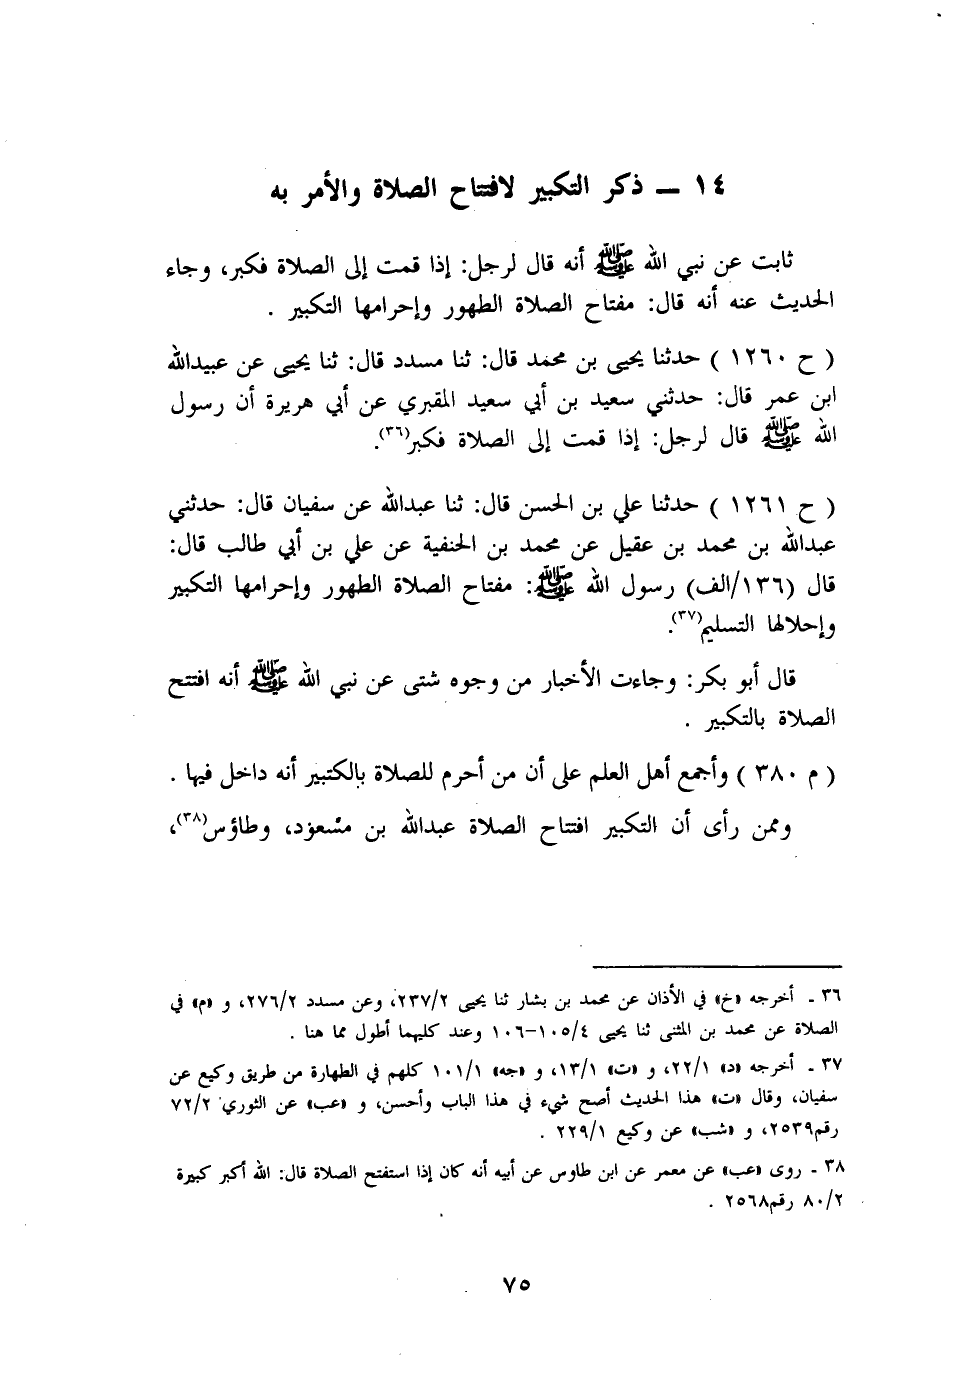 ١٤ ــ ذكر التكبير لافتتاح الصلاة والأمر به
ثابت عن نبي الله ﷺ أنه قال لرجل: إذا قمت إلى الصلاة فكبر، وجاء
الحديث عنه أنه قال: مفتاح الصلاة الطهور وإحرامها التكبير .
( ح ١٢٦٠ ) حدثنا يحيى بن محمد قال: ثنا مسدد قال: ثنا يحيى عن عبيدالله
ابن عمر قال: حدثني سعيد بن أبي سعيد المقبري عن أبي هريرة أن رسول
الله ﷺ قال لرجل: إذا قمت إلى الصلاة فكبر(٣٦).
( ح ١٢٦١ ) حدثنا علي بن الحسن قال: ثنا عبدالله عن سفيان قال: حدثني
عبدالله بن محمد بن عقيل عن محمد بن الحنفية عن علي بن أبي طالب قال:
قال (١٣٦/الف) رسول الله ﷺ: مفتاح الصلاة الطهور وإحرامها التكبير
وإحلالها التسليم(٣٧).
قال أبو بكر: وجاءت الأخبار من وجوه شتى عن نبي الله ﷺ أنه افتتح
الصلاة بالتكبير .
( م ٣٨٠ ) وأجمع أهل العلم على أن من أحرم للصلاة بالكتبير أنه داخل فيها .
وممن رأى أن التكبير افتتاح الصلاة عبدالله بن مسعود، وطاؤس(٣٨)،
٣٦ ـ أخرجه «خ» في الأذان عن محمد بن بشار ثنا يحيى ٢٣٧/٢، وعن مسدد ٢٧٦/٢، و «م» في
الصلاة عن محمد بن المثنى ثنا يحيى ١٠٥/٤-١٠٦ وعند كليهما أطول مما هنا .
٣٧ ـ أخرجه «د» ٢٢/١، و «ت» ١٣/١، و «جه» ١٠١/١ كلهم في الطهارة من طريق وكيع عن
سفيان، وقال «ت» هذا الحديث أصح شيء في هذا الباب وأحسن، و «عب» عن الثوري ٧٢/٢
رقم٢٥٣٩، و «شب» عن وكيع ٢٢٩/١ .
٣٨ ـ روى «عب» عن معمر عن ابن طاوس عن أبيه أنه كان إذا استفتح الصلاة قال: الله أكبر كبيرة
٨٠/٢ رقم٢٥٦٨ .
٧٥